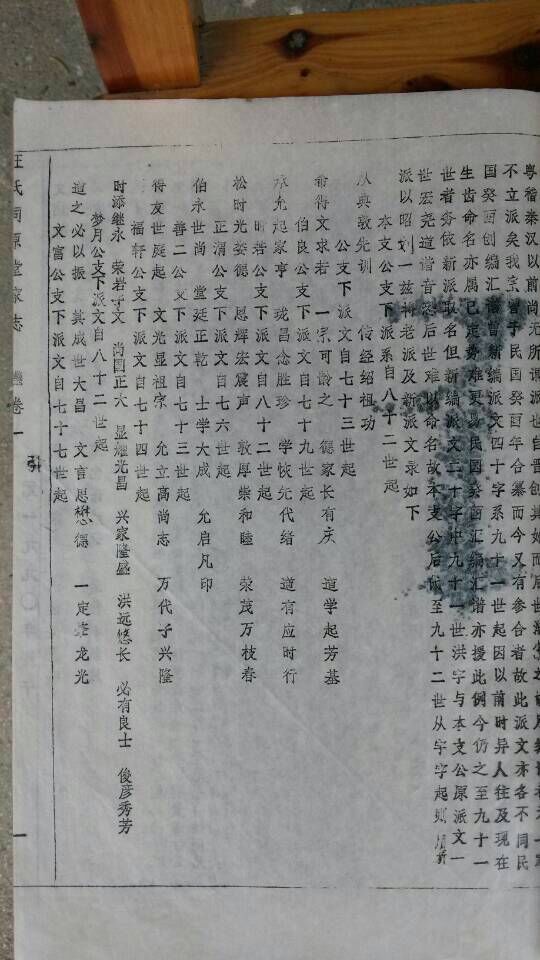 粤稽秦汉以前尚无所谓派也自晋创其始而后世
不立派矣我宗曾于民国癸酉年合纂而今又有参合者故此派文亦各不同民
国癸酉创编汇谱曾新编派文四十字系九十一世起因以前时异人往及现在
生齿命名亦属已定势难更易民国癸酉汇编汇谱亦授此例今仍之至九十一
世者务依新派取名但新编派文二十字中九十一世洪字与本支公原派文一
世宏尧道谐音恐后世难以命名故本支公后派至九十二世从字字起则用新
派以昭划一兹将老派及新派文录如下
本支公支下派系自八十二世起
从典敦先训 传经绍祖功
公支下派文自七十三世起
希得文求若 一宗可龄之 德家长有庆 道学起芳基
伯良公支下派文自七十九世起
承允起家亨 珑昌念胜珍 学恢先代绪 道有应时行
时若公支下派文自八十二世起
松时光娄德 恩辉宏震声 敦厚崇和睦 荣茂万枝春
正渭公支下派文自七六世起
伯永世尚 堂廷正乾 士学大成 允启凡印
善二公支下派文自七十三世起
得友世庭起 文光显祖宗 允立高尚志 万代子兴隆
福轩公支下派文自七十四世起
时添继永 荣岩子文 尚国正大 显耀光昌 兴家隆盛 洪远悠长 必有良士 俊彦秀芳
梦月公支下派文自八十二世起
道之必以振 其成世大昌 文言思懋德 一定老龙光
文富公支下派文自七十七世起
汪氏同源堂家志 卷一 引 一